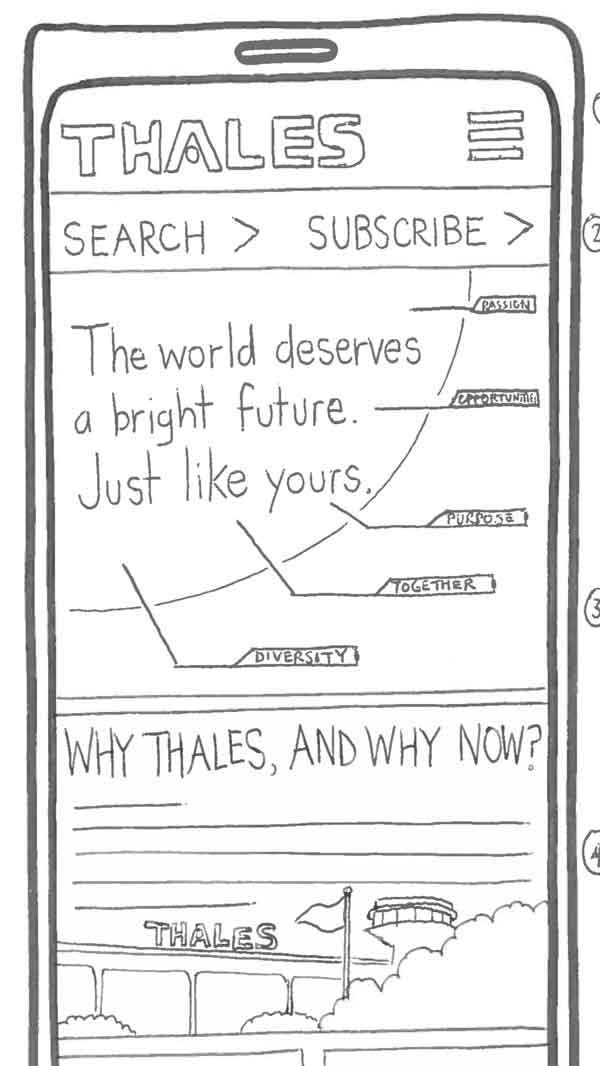 THALES
SEARCH >
SUBSCRIBE >
The world deserves
a bright future.
Just like yours.
PASSION
OPPORTUNITIES
PURPOSE
TOGETHER
DIVERSITY
WHY THALES, AND WHY NOW?
THALES
2
3
4